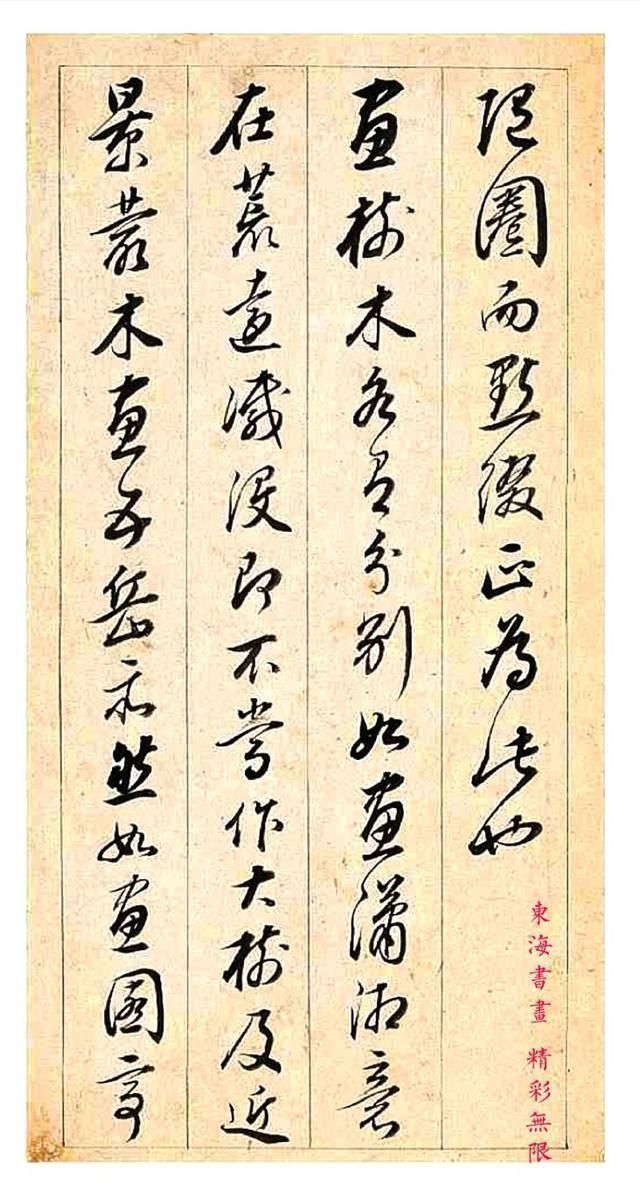 圈而點綴正為此也
畫樹木各有分別如畫瀟湘意
在荒遠滅沒即不當作大樹及近
景叢木畫五岳亦然如畫園亭
東海書畫 精彩無限